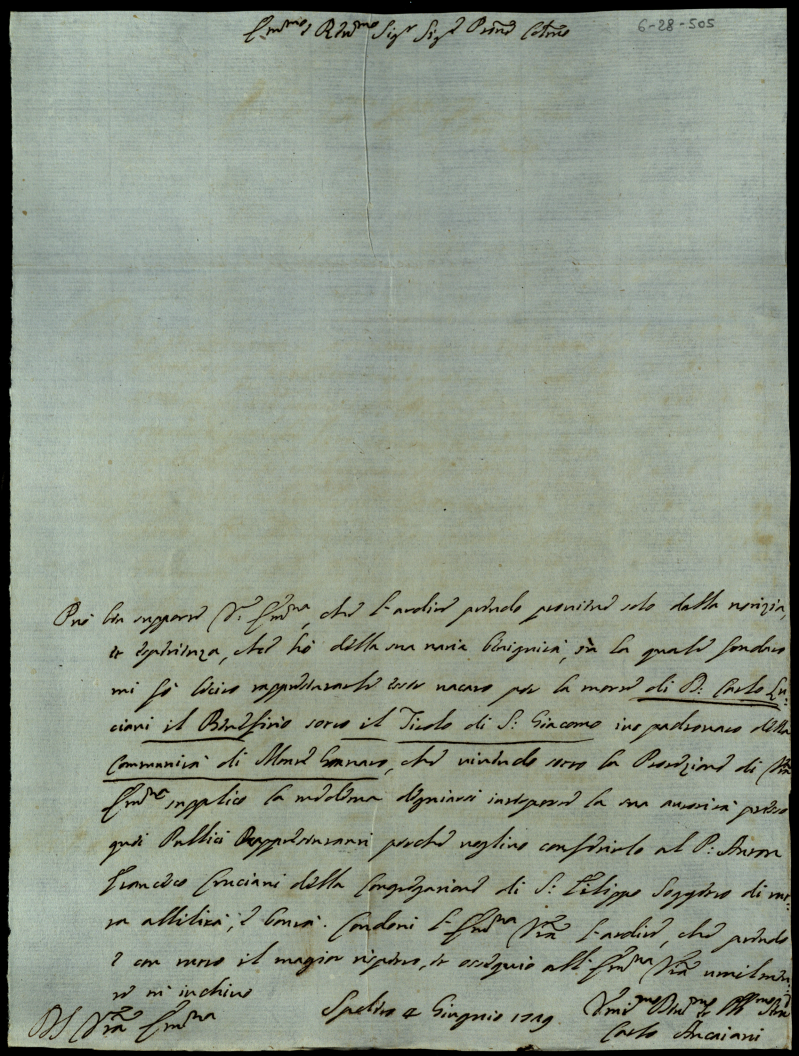 Em.mo e Rev.mo Sig.r Sig.r Pron.e Col.mo
6-28-505
Può ben supporre V.a Em.za, che l'ardire prendo proviene solo dalla notizia,
et esperienza, che hò della sua natia benignità, sù la quale fondato
mi fò lecito rappresentarle esser vacato per la morte di D: Carlo Lu-
ciani il Benefizio sotto il Titolo di S: Giacomo ius padronato della
Communità di Monte Gennaro, che vivendo sotto la Protezione di V.ra
Em.za supplico la medema degniarsi interporre la sua autorità presso
quei Publici Rappresentanti perche voglino conferirlo al P: Anton
Francesco Cruciani della Congregazione di S: Filippo Soggetto di mo-
ta abilità, e bontà. Condoni l'Em.za V.ra l'ardire, che prendo
e con tutto il maggior rispetto, et ossequio all'Em.za V.ra umilmen-
te m'inchino
Di V.ra Em.za
Spoleto 4 Giugnio 1719
Umil.mo Dev.mo et Obl.mo Ser.e
Carlo Ancaiani